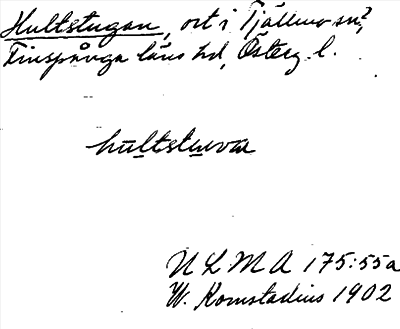 Hultstugan, ort i Tjällmo sn?,
Finspånga läns hd, Österg l.
hultstuvνa
U L M A 175:55a
W. Komstadius 1902